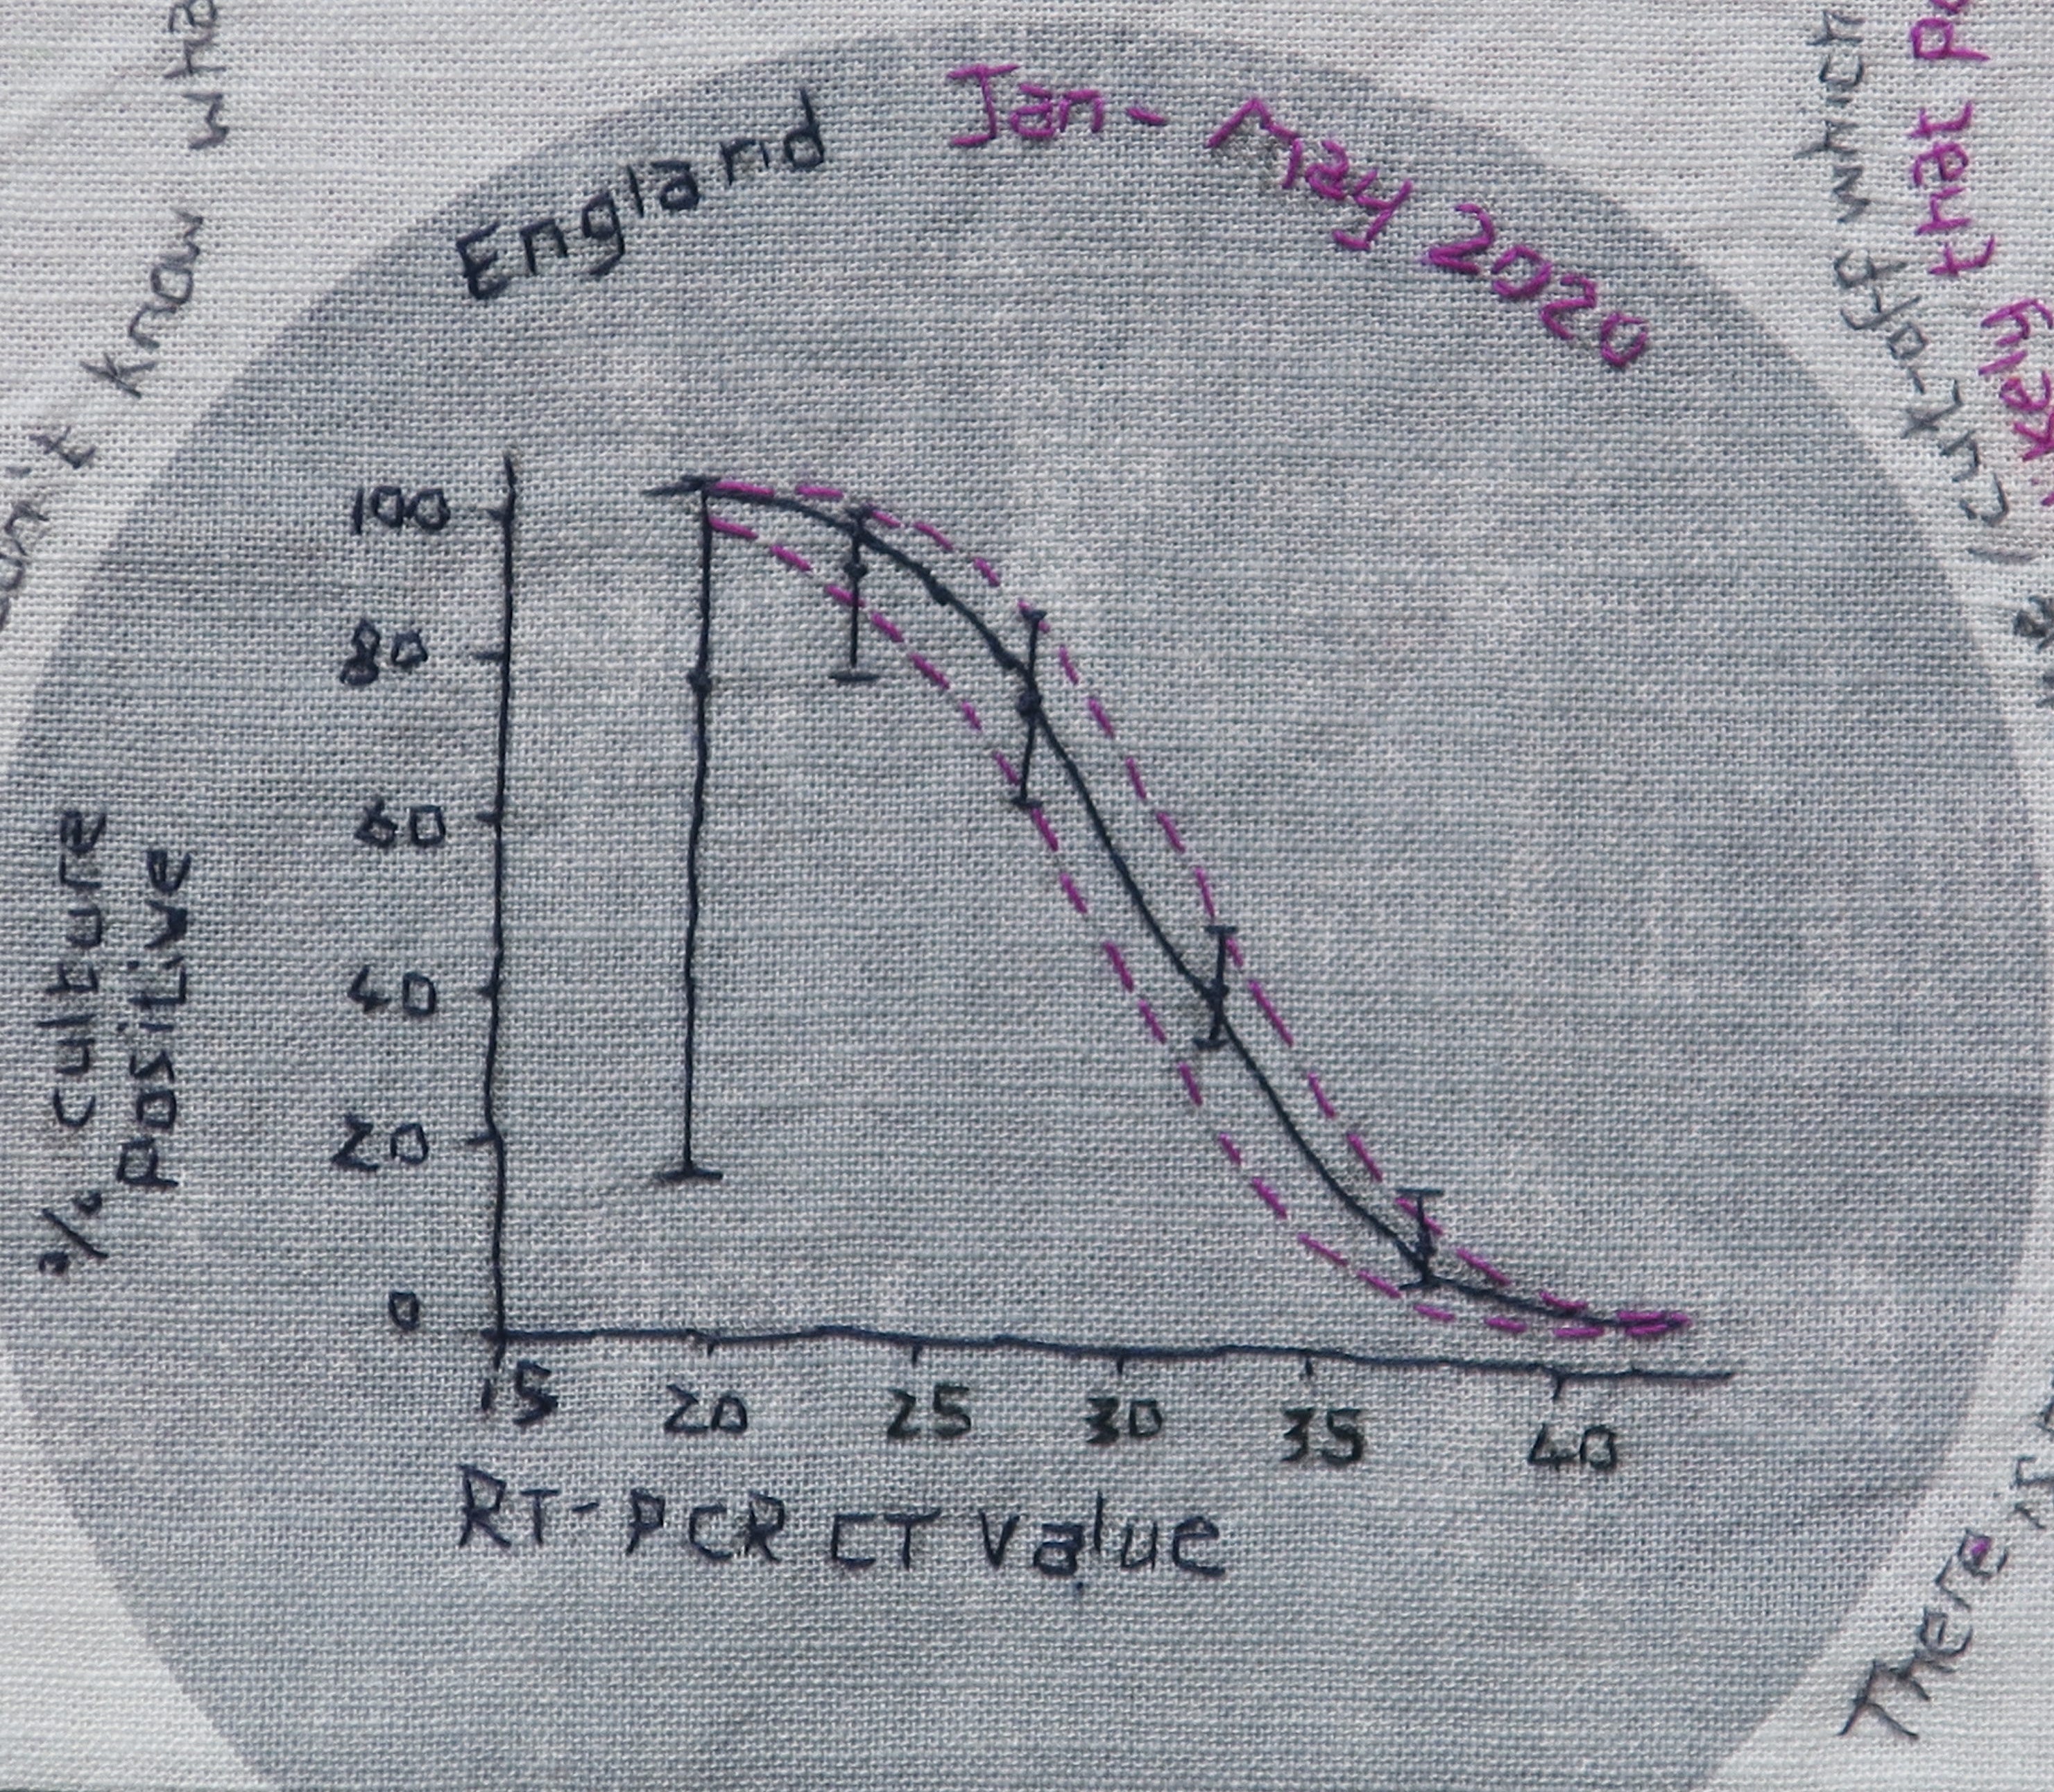 know wha
England Jan - May 2020
which
cut-off
that
100
80
60
40
20
0
% culture
positive
15 20 25 30 35 40
RT-PCR CT Value
There is